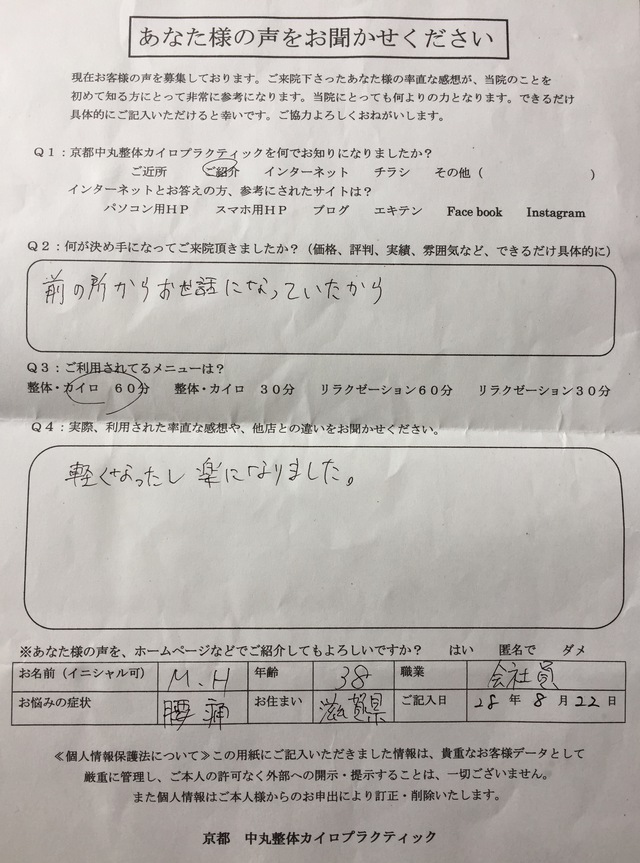 あなた様の声をお聞かせください
現在お客様の声を募集しております。ご来院下さったあなた様の率直な感想が、当院のことを
初めて知る方にとって非常に参考になります。当院にとっても何よりの力となります。できるだけ
具体的にご記入いただけると幸いです。ご協力よろしくおねがいします。
Q1：京都中丸整体カイロプラクティックを何でお知りになりましたか？
ご近所　ご紹介　インターネット　チラシ　その他（　　　　）
インターネットとお答えの方、参考にされたサイトは？
パソコン用HP　スマホ用HP　ブログ　エキテン　Face book　Instagram
Q2：何が決め手になってご来院頂きましたか？（価格、評判、実績、雰囲気など、できるだけ具体的に）
前の所からお世話になっていたから
Q3：ご利用されてるメニューは？
整体・カイロ　60分　整体・カイロ　30分　リラクゼーション60分　リラクゼーション30分
Q4：実際、利用された率直な感想や、他店との違いをお聞かせください。
軽くなったし 楽になりました。
※あなた様の声を、ホームページなどでご紹介してもよろしいですか？　はい　匿名で　ダメ
お名前（イニシャル可）　M.H　年齢　38　職業　会社員
お悩みの症状　腰痛　お住まい　滋賀県　ご記入日　28年8月22日
≪個人情報保護法について≫この用紙にご記入いただきました情報は、貴重なお客様データとして
厳重に管理し、ご本人の許可なく外部への開示・提示することは、一切ございません。
また個人情報はご本人様からのお申出により訂正・削除いたします。
京都　中丸整体カイロプラクティック